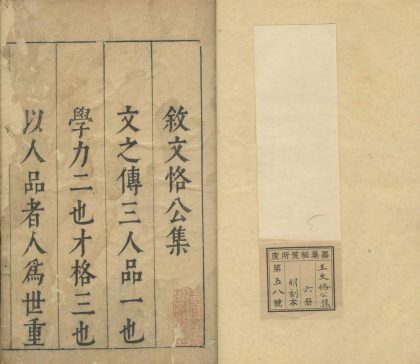 敘文恪公集
文之傳三人品一也
學力二也才格三也
以人品者人爲世重
5
王文恪公集
六册
明刻本
第五八號